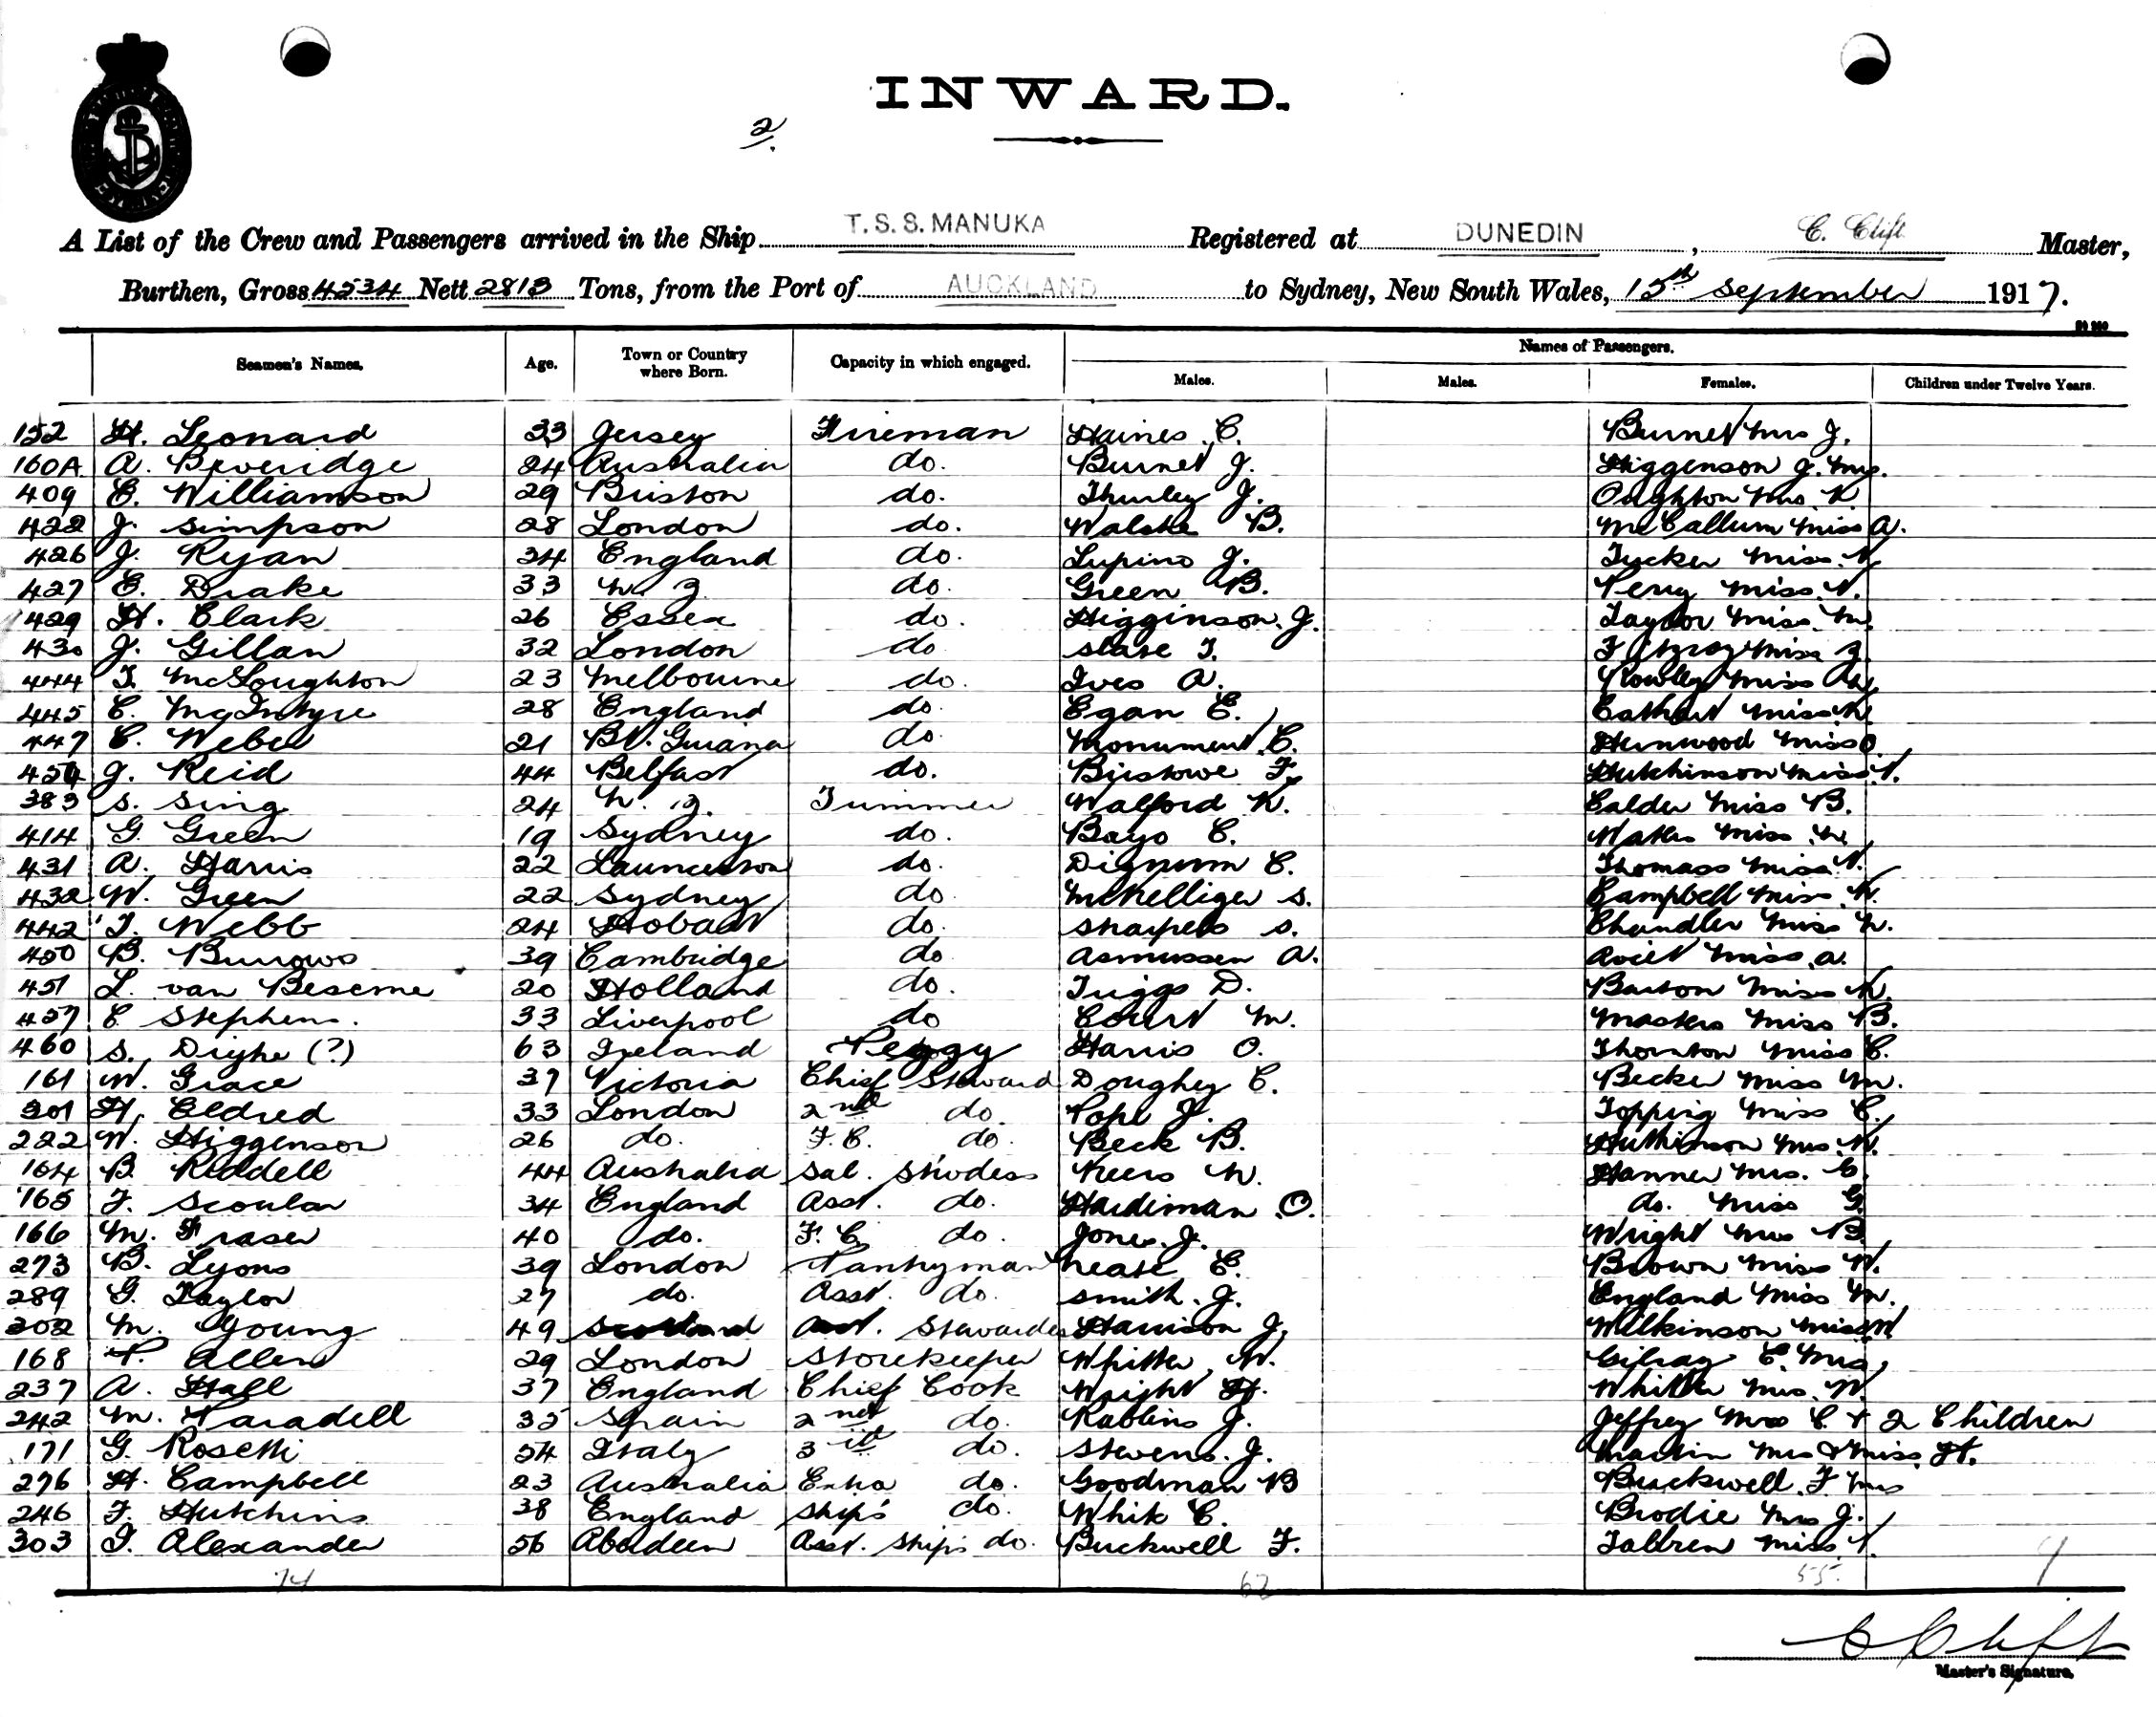 INWARD.
2.
A List of the Crew and Passengers arrived in the Ship T.S.S. MANUKA Registered at DUNEDIN, C. Clift Master,
Burthen, Gross 4534 Nett 2813 Tons, from the Port of AUCKLAND to Sydney, New South Wales, 15th September 1917.
Seamen's Names. Age. Town or Country where Born. Capacity in which engaged. Names of Passengers.
Males. Males. Females. Children under Twelve Years.
152 H. Leonard 33 Jersey Fireman Haines C. Burnet Mrs J.
160A A. Beveridge 24 Australia do. Burnet J. Higgenson J. Mrs.
409 C. Williamson 29 Briston do. Thurley J. Oughton Mrs. K
422 J. Simpson 28 London do. Walske B. McCallum Miss A.
426 J. Ryan 34 England do. Lupino J. Tucker Miss
427 E. Drake 33 N Z. do. Green B. Perry Miss V.
429 H. Clark 26 Essex do. Higginson. J. Taylor Miss. M.
430 J. Gillan 32 London do Slase T. Fitzroy Miss Z.
444 T. McLoughton 23 Melbourne do. Ives A. Rowley Miss
445 C. McIntyre 28 England do. Egan E. Miss
447 C. Weber 21 Bt. Guiana do. Monument. C. Henwood Miss O.
454 J. Reid 44 Belfast do. Bristowe F. Hutchinson Miss V.
383 S. Sing 24 N. Z. Trimmer Walford K. Calder Miss B.
414 G. Green 19 Sydney do. Bayo C. Waters Miss M.
431 A. Harris 22 Launceston do. Dignum C. Thomass Miss V.
432 W. Green 22 Sydney do. McKelliger S. Campbell Miss. W.
442 T. Webb 24 Hobart do. Sharpels S. Chandler Miss N.
450 B. Burrows 39 Cambridge do Asmussen A. Aviet Miss. A.
451 L. van Beseme 20 Holland do. Triggs D. Barton Miss
457 C Stephens. 33 Liverpool do Court M. Masters Miss B.
460 S. Dighe (?) 63 Ireland Peggy Harris O. Thornton Miss C.
161 W. Grace 37 Victoria Chief Steward Doughey C. Becker Miss M.
201 H. Eldred 33 London 2nd do. Pope J. Topping Miss C.
222 W. Higgenson 26 do. F.C. do. Beck B. Hutchinson Mrs. W.
164 B. Riddell 44 Australia Sal. Stwdess Keers N. Hanner Mrs. C.
165 F. Scoular 34 England Asst. do. Hardiman O. do. Miss G.
166 M. Fraser 40 do. F.C. do. Jones. J. Wright Mrs B.
273 B. Lyons 39 London Pantryman Neale C. Brown Miss W.
289 G. Taylor 27 do. Asst. do. Smith. J. England Miss M.
302 M. Young 49 Scotland Asst. Stewardess Harrison J. Wilkinson Miss W
168 P. Allen 29 London Storekeeper Whitta W. Gilray C. Mrs,
237 A. Hall 37 England Chief Cook Wright H. Whitta Mrs. W.
242 M. Paradell 35 Spain 2nd do. Rabbins J. Jeffrey Mrs C + 2 Children
171 G. Rosetti 54 Italy 3rd do. Stevens. J. Martin Mrs & Miss. H.
276 H. Campbell 23 Australia Extra do. Goodman B Buckwell. F Mrs
246 F. Hutchins 38 England Ship's do. White C. Brodie Mrs J.
303 G. Alexander 56 Aberdeen Asst. Ship's do. Buckwell F. Miss V.
74 62 55. 9
C Clift
Master's Signature.